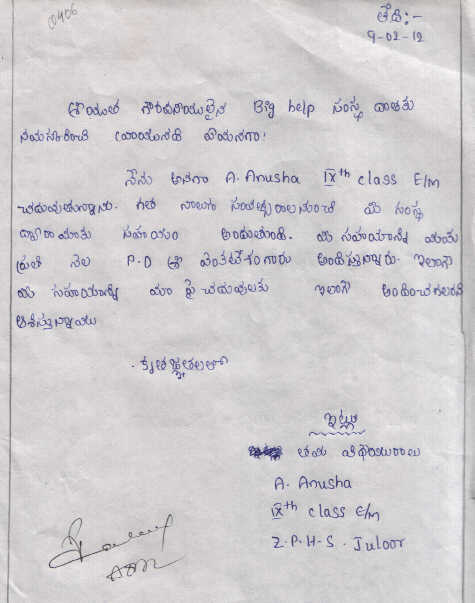 0406
తేది:-
9-02-12
శ్రీయుత గౌరవనీయులైన Big help సంస్థ దాతకు
నమస్కరించి వ్రాయునది ఏమనగా!
నేను అనగా A. Anusha IXth class E/m
చదువుతున్నాను. గత నాలుగు సంవత్సరాలనుంచి మీ సంస్థ
ద్వారా మాకు సహాయం అందుతుంది. మీ సహాయాన్ని మాకు
ప్రతి నెల P.D శ్రీ వెంకటేశంగారు అందిస్తున్నారు. ఇలాగే
మీ సహాయాన్ని మా పై చదువులకు ఇలాగే అందించగలరని
ఆశిస్తున్నాను
. కృతజ్ఞతలతో
ఇట్లు
తమ విధేయురాలు
A. Anusha
IXth class E/m
Z.P.H.S. Juloor